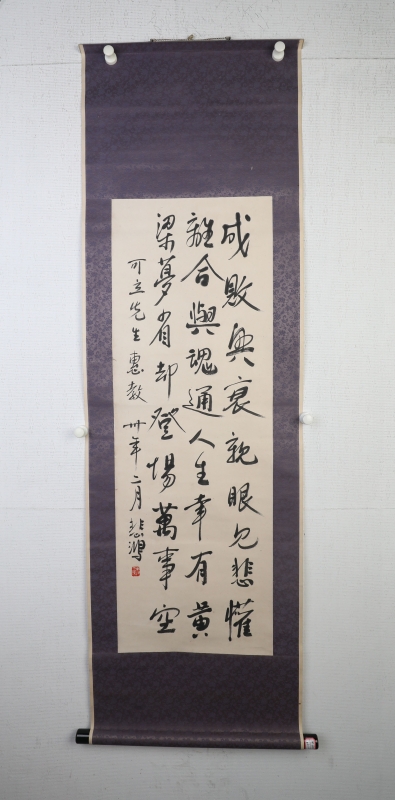 成敗興衰親眼見悲懽
離合與魂通人生幸有黃
梁夢省却登場萬事空
可立先生惠教 卅年二月 悲鴻